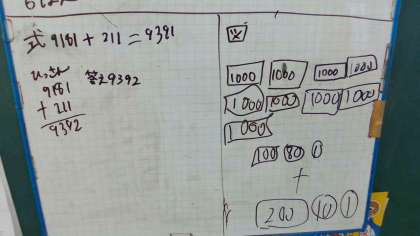 式 9181+211=9391
ひっさん 答え9392
9181
+ 211
9392
図
1000 1000 1000 1000
1000 1000 1000 1000
1000
100 80 1
+
200 10 1